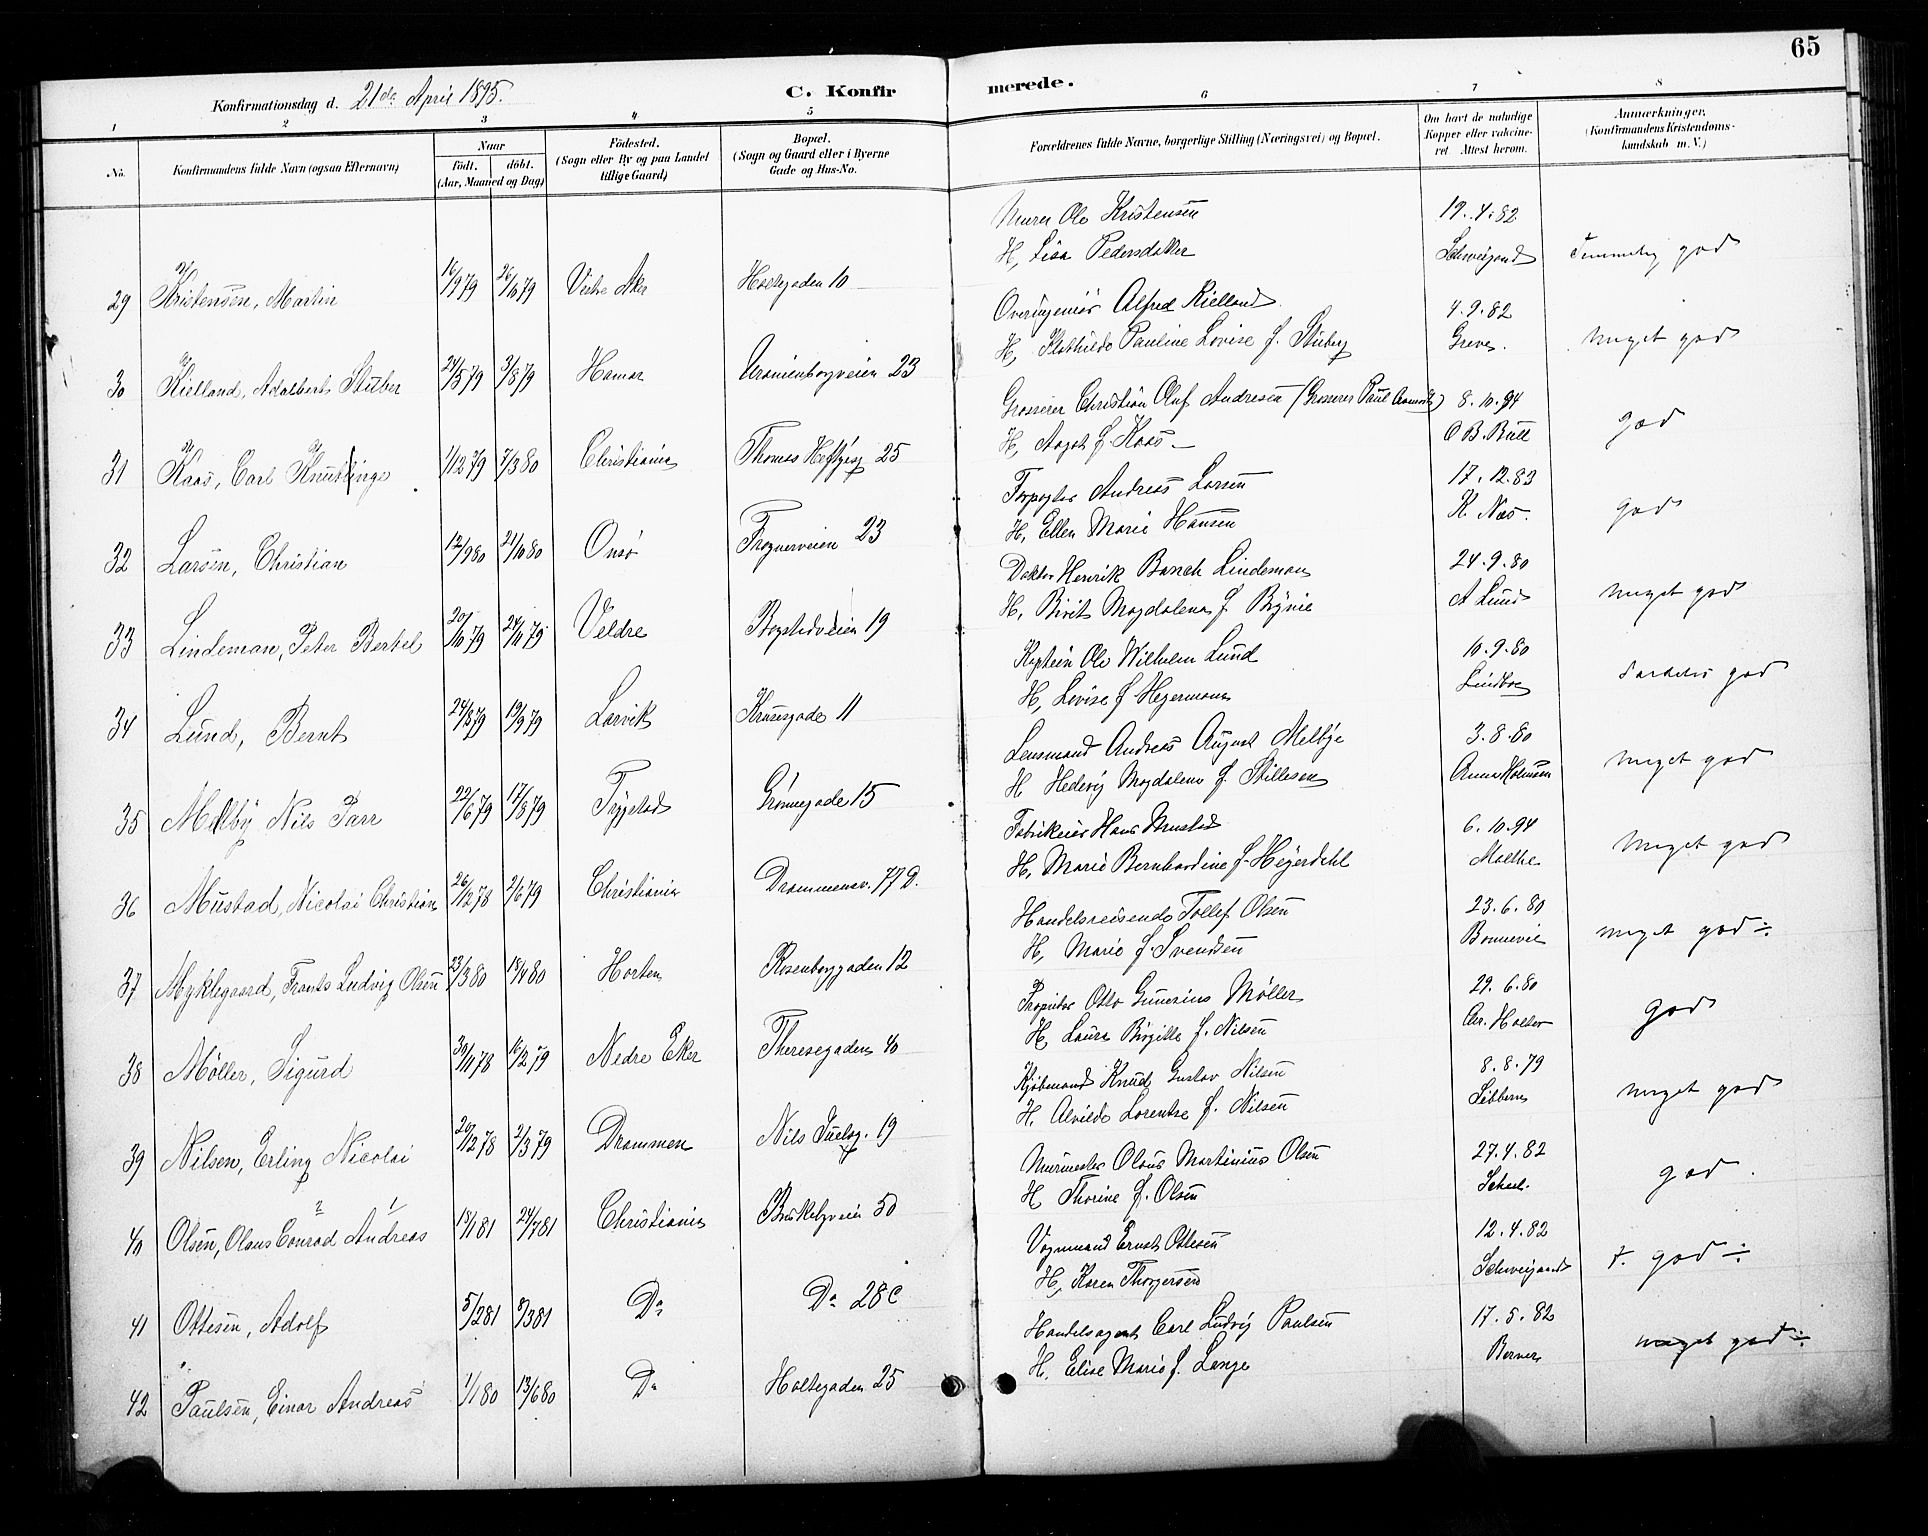 65
Konfirmationsdag d. 21de April 1895.
C. Konfirmerede.
1 2 3 4 5 6 7 8
No.
Konfirmandens fulde Navn (ogsaa Efternavn)
Naar
født. døbt.
(Aar, Maaned og Dag)
Fødested.
(Sogn eller By og paa Landet
tillige Gaard)
Bopæl.
(Sogn og Gaard eller i Byerne
Gade og Hus-No.
Forældrenes fulde Navne, borgerlige Stilling (Næringsvei) og Bopæl.
Om havt de naturlige
Kopper eller vaccine-
ret. Attest herom.
Anmærkninger.
(Konfirmandens Kristendoms-
kundskab m. V.)
29 Kristensen, Martin 16/9 79 26/10 79 Vestre Aker Holtegaden 10
Murer Ole Kristensen 19.4.82
H, Lisa Pedersdatter Schweigaard Temmelig god
30 Kielland, Adalbert Stuber 24/5 79 3/8 79 Hamar Uranienborgveien 23
Overingeniør Alfred Kielland 4.9.82
H, Klothilde Pauline Lovise f. Stuberg Greve. Meget god
31 Kaas, Carl Knut Inge 1/12 79 7/3 80 Christiania Thomas Heftyesg 25
Grosserer Christian Oluf Andresen (Grosserer Paul) 8.10.94
H, Aagot f. Kaas O B. Bull god
32 Larsen, Christian 12/9 80 21/10 80 Onsø Frognerveien 23
Forpagter Andreas Larsen 17.12.83
H, Ellen Marie Hansen K. Næs. god
33 Lindeman, Peter Bertel 20/10 79 24/11 79 Veldre Bogstadveien 19
Doktor Henrik Bosch Lindeman 24.9.80
H, Birit Magdalena f. Brynie A Lund meget god
34 Lund, Bernt 24/8 79 19/9 79 Larvik Krusesgade 11
Kaptein Ole Wilhelm Lund 10.9.80
H, Lovise f Hegermann Lindboe Særdeles god
35 Melby Nils Parr 22/6 79 17/8 79 Trygstad Grønnegade 15
Lensmand Andreas August Melbye 3.8.80
H Hedevig Magdalene f. Stillesen Anna Holmsen meget god
36 Mustad, Nicolai Christian 26/12 78 2/6 79 Christiania Drammensv. 77 D.
Fabrikeier Hans Mustad 6.10.94
H, Marie Bernhardine f. Heyerdahl Malthe Meget god
37 Myklegaard, Frants Ludvig Olsen 23/3 80 18/4 80 Horten Rosenborggaden 12
Handelsreisende Tollef Olsen 23.6.80
H, Marie f. Svendsen Bonnevie meget god ÷
38 Møller, Sigurd 30/11 78 16/2 79 Nedre Eker Theresegaden 40
Proprietær Otto Gunerius Møller 29.6.80
H, Laura Birgitte f. Nilsen Chr. Holter god
39 Nilsen, Erling Nicolai 20/12 78 2/3 79 Drammen Nils Juelsg. 19
Kjøbmand Knud Gustav Nilsen 8.8.79
H. Alvilde Lorentze f. Nilsen Sibbern meget god
40 Olsen, Olaus Conrad Andreas 18/1 81 24/7 81 Christiania Briskebyveien 50
Murmester Olaus Martinius Olsen 27.4.82
H Thorine f. Olsen Scheel. god
41 Ottesen, Adolf 5/2 81 8/3 81 Do Do 28 C
Vognmand Ernst Ottesen 12.4.82
H, Karen Thorgersen Schweigaard t. god ÷
42 Paulsen, Einar Andreas 1/1 80 13/6 80 Do Holtegaden 25
Handelsagent Carl Ludvig Paulsen 17.5.82
H. Elise Marie f. Lange Berner meget god ÷